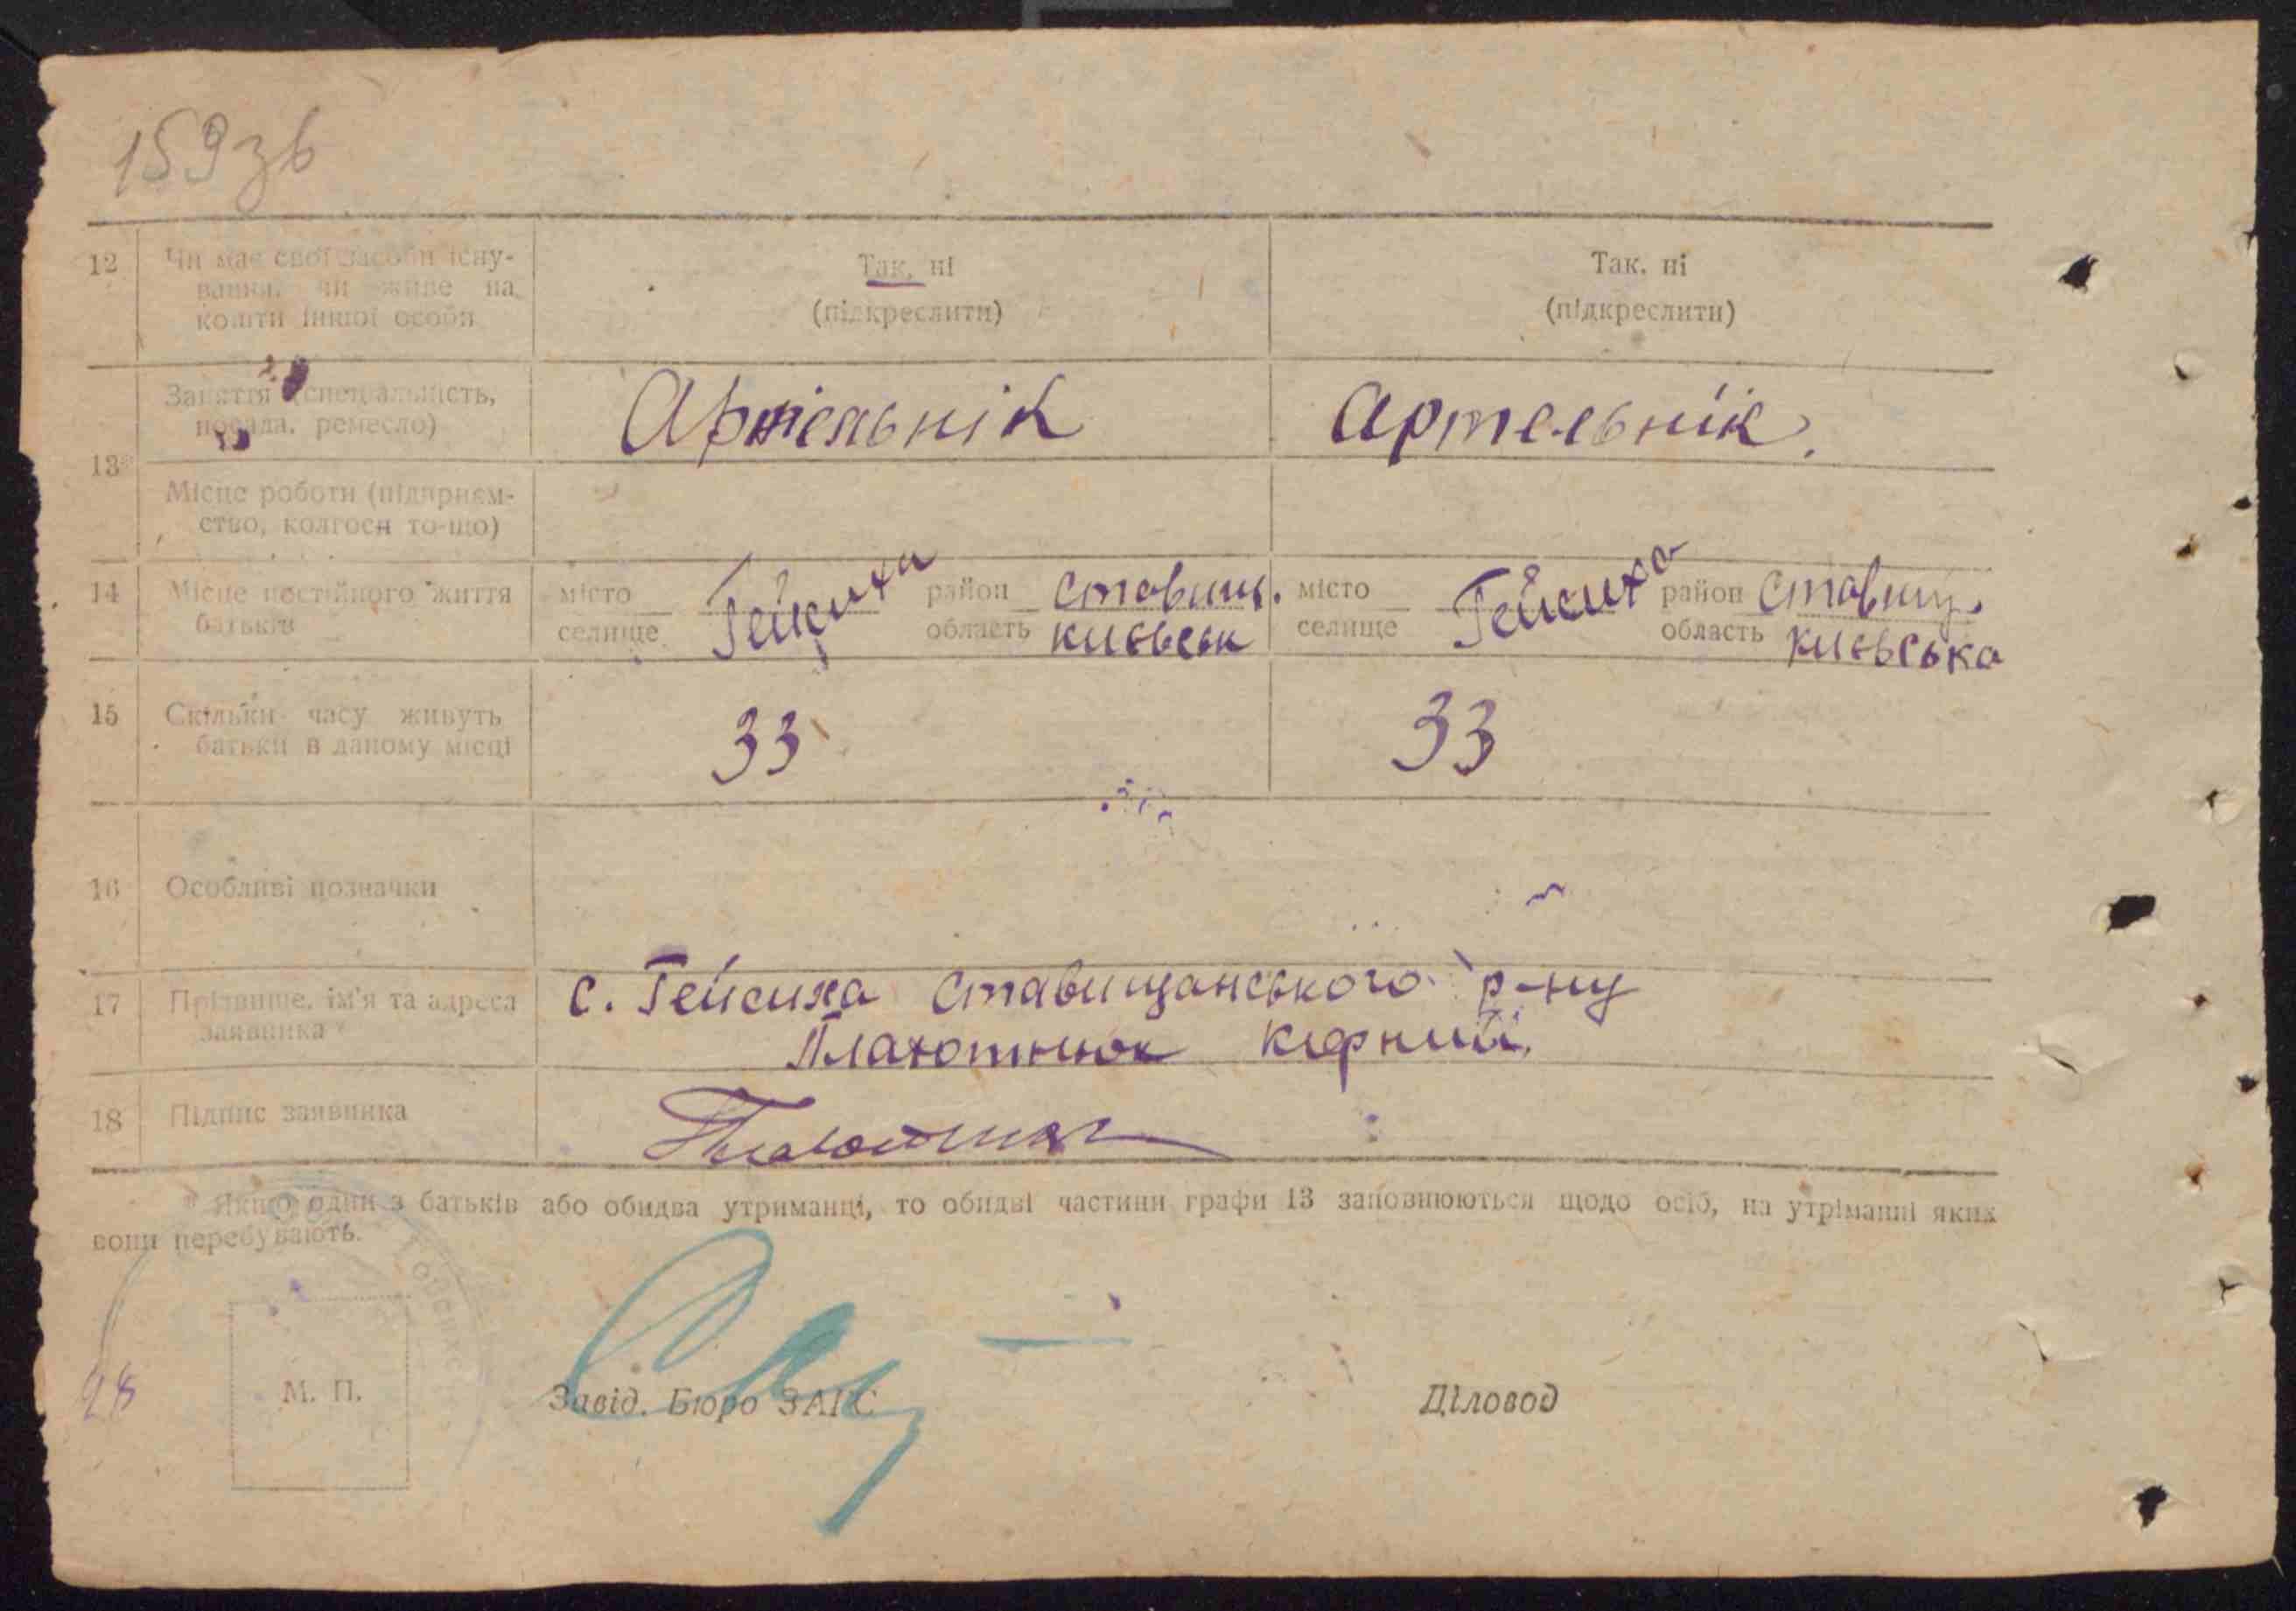 159 зв
12 Чи має свої засоби існу-
вання, чи живе на
кошти іншої особи
Так, ні
(підкреслити)
Так, ні
(підкреслити)
13*
Заняття (спеціальність,
посада, ремесло)
Артельнік
Артельнік.
Місце роботи (підприєм-
ство, колгосп то-що)
14 Місце постійного життя
батьків
місто
селище
Гейсиха
район Ставищ.
область київськ
місто
селище
Гейсиха
район Ставищ.
область київська
15 Скільки часу живуть
батьки в даному місці
33
33
16 Особливі позначки
17 Прізвище, ім'я та адреса
заявника
с. Гейсиха Ставищанського р-ну
Плахотнюк
18 Підпис заявника
* Якщо один з батьків або обидва утриманці, то обидві частини графи 13 заповнюються щодо осіб, на утріманні яких
вони перебувають.
28
М. П.
Завід. Бюро ЗАГС
Діловод